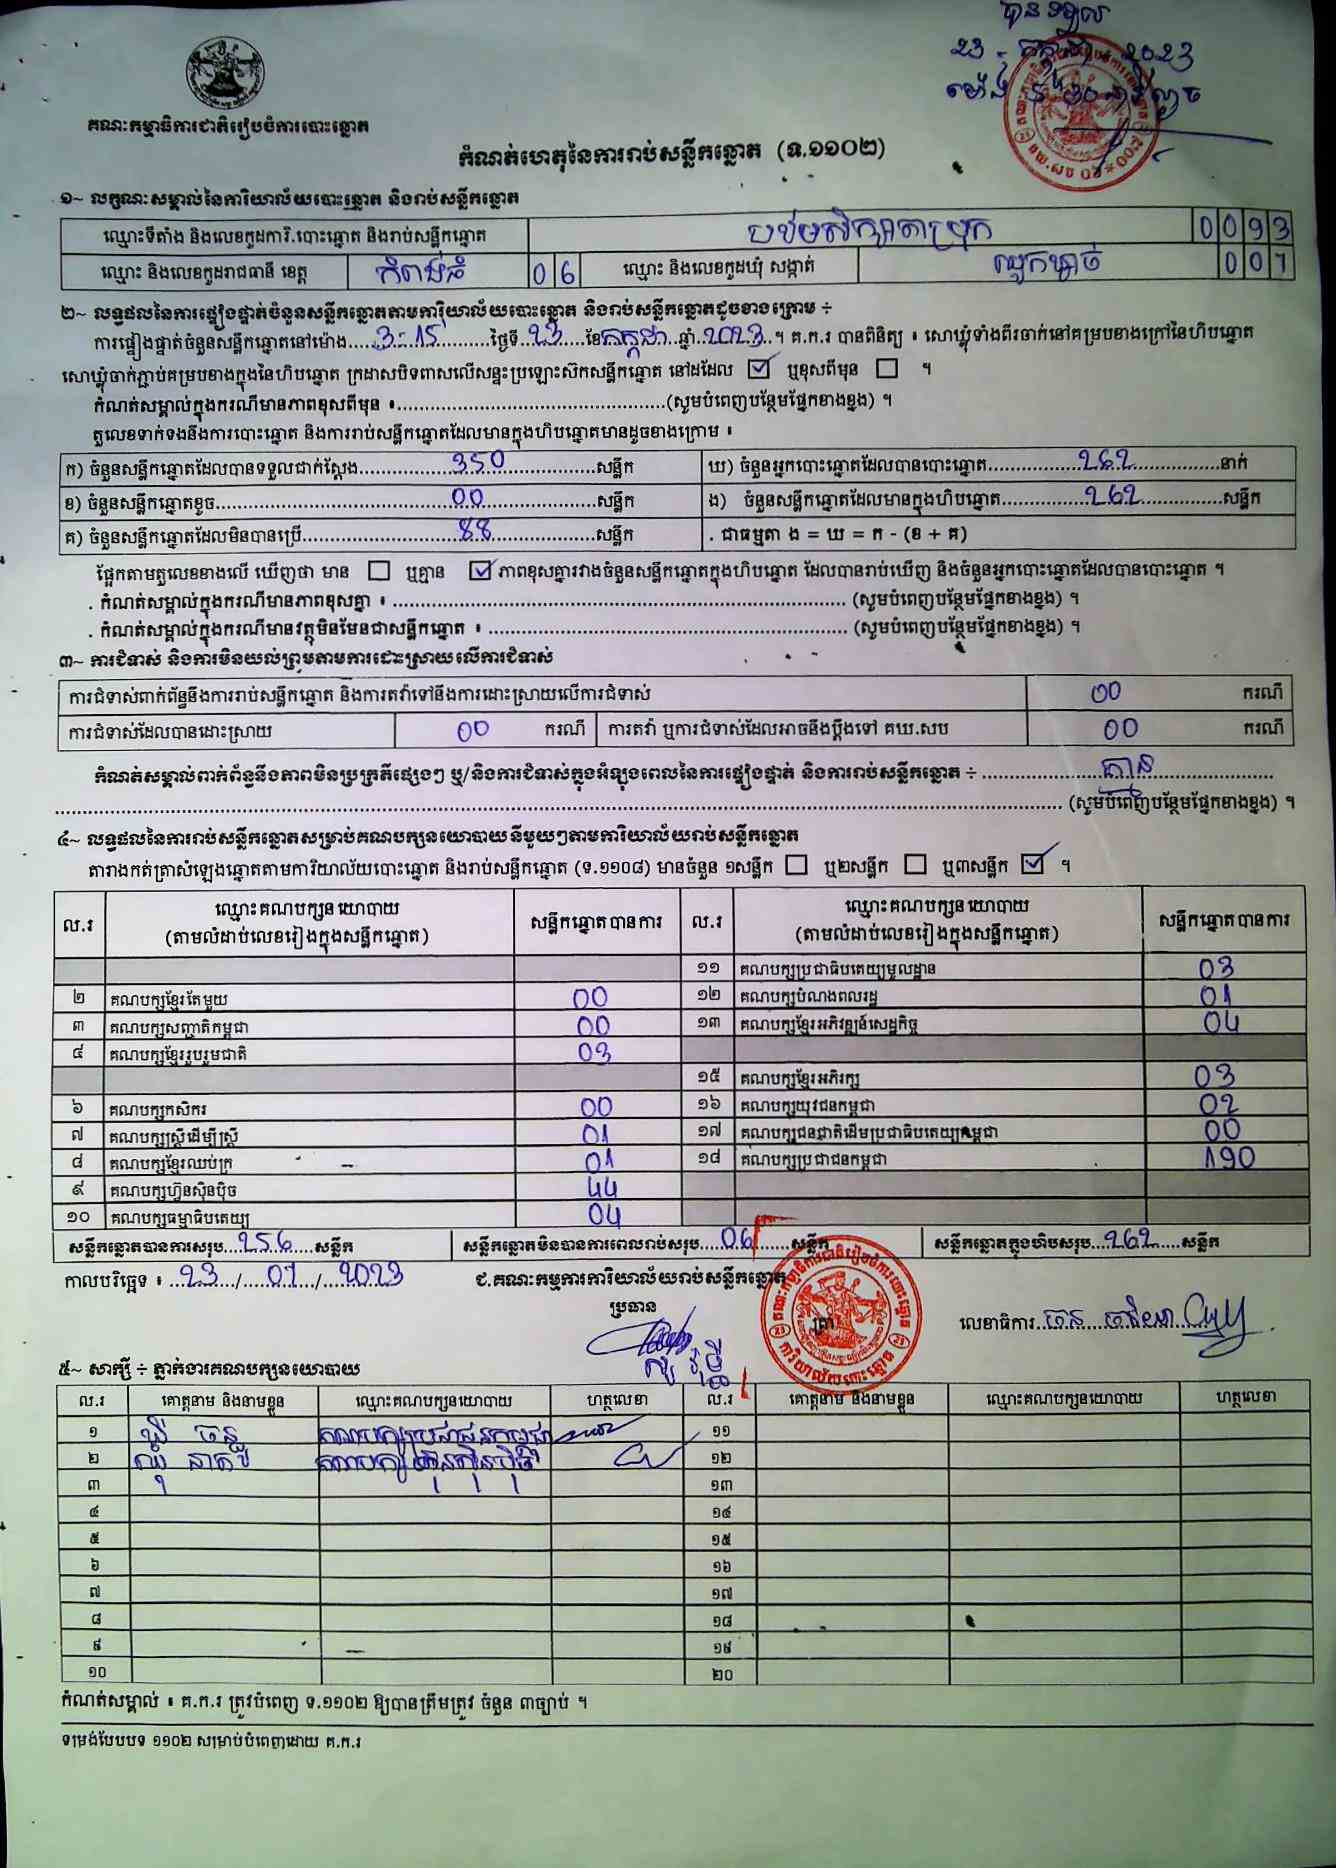 បានទទួល
23 - កក្កដា - 2023
គណៈកម្មាធិការជាតិរៀបចំការបោះឆ្នោត
កំណត់ហេតុនៃការរាប់សន្លឹកឆ្នោត (ទ.១១០២)
១~ លក្ខណៈសម្គាល់នៃការិយាល័យបោះឆ្នោត និងរាប់សន្លឹកឆ្នោត
ឈ្មោះទីតាំង និងលេខកូដការិ.បោះឆ្នោត និងរាប់សន្លឹកឆ្នោត បឋមសិក្សាតាប្រុក 0093
ឈ្មោះ និងលេខកូដរាជធានី ខេត្ត កំពង់ធំ 06 ឈ្មោះ និងលេខកូដឃុំ សង្កាត់ 001
២~ លទ្ធផលនៃការផ្ទៀងផ្ទាត់ចំនួនសន្លឹកឆ្នោតតាមការិយាល័យបោះឆ្នោត និងរាប់សន្លឹកឆ្នោតដូចខាងក្រោម ÷
ការផ្ទៀងផ្ទាត់ចំនួនសន្លឹកឆ្នោតនៅម៉ោង...3-15...ថ្ងៃទី...23...ខែកក្កដា...ឆ្នាំ..2023..។ គ.ក.រ បានពិនិត្យ ៖ សោឃ្លុំទាំងពីរចាក់នៅគម្របខាងក្រៅនៃហិបឆ្នោត
សោឃ្លុំចាក់ភ្ជាប់គម្របខាងក្នុងនៃហិបឆ្នោត ក្រដាសបិទពាសលើសន្ទះប្រឡោះស៊កសន្លឹកឆ្នោត នៅដដែល ☑ ឬខុសពីមុន ☐ ។
កំណត់សម្គាល់ក្នុងករណីមានភាពខុសពីមុន ៖...(សូមបំពេញបន្ថែមផ្នែកខាងខ្នង) ។
តួលេខទាក់ទងនឹងការបោះឆ្នោត និងការរាប់សន្លឹកឆ្នោតដែលមានក្នុងហិបឆ្នោតមានដូចខាងក្រោម ៖
ក) ចំនួនសន្លឹកឆ្នោតដែលបានទទួលជាក់ស្តែង...350...សន្លឹក ឃ) ចំនួនអ្នកបោះឆ្នោតដែលបានបោះឆ្នោត...262...នាក់
ខ) ចំនួនសន្លឹកឆ្នោតខូច...00...សន្លឹក ង) ចំនួនសន្លឹកឆ្នោតដែលមានក្នុងហិបឆ្នោត...262...សន្លឹក
គ) ចំនួនសន្លឹកឆ្នោតដែលមិនបានប្រើ...88...សន្លឹក . ជាធម្មតា ង = ឃ = ក - (ខ + គ)
ផ្អែកតាមតួលេខខាងលើ ឃើញថា មាន ☐ ឬគ្មាន ☑ ភាពខុសគ្នារវាងចំនួនសន្លឹកឆ្នោតក្នុងហិបឆ្នោត ដែលបានរាប់ឃើញ និងចំនួនអ្នកបោះឆ្នោតដែលបានបោះឆ្នោត ។
. កំណត់សម្គាល់ក្នុងករណីមានភាពខុសគ្នា ៖ ... (សូមបំពេញបន្ថែមផ្នែកខាងខ្នង) ។
. កំណត់សម្គាល់ក្នុងករណីមានវត្ថុមិនមែនជាសន្លឹកឆ្នោត ៖ ... (សូមបំពេញបន្ថែមផ្នែកខាងខ្នង) ។
៣~ ការជំទាស់ និងការមិនយល់ព្រមតាមការដោះស្រាយលើការជំទាស់
ការជំទាស់ពាក់ព័ន្ធនឹងការរាប់សន្លឹកឆ្នោត និងការតវ៉ាទៅនឹងការដោះស្រាយលើការជំទាស់ 00 ករណី
ការជំទាស់ដែលបានដោះស្រាយ 00 ករណី ការតវ៉ា ឬការជំទាស់ដែលអាចនឹងប្តឹងទៅ គឃ.សប 00 ករណី
កំណត់សម្គាល់ពាក់ព័ន្ធនឹងភាពមិនប្រក្រតីផ្សេងៗ ឬ/និងការជំទាស់ក្នុងអំឡុងពេលនៃការផ្ទៀងផ្ទាត់ និងការរាប់សន្លឹកឆ្នោត ÷ ...គ្មាន...
... (សូមបំពេញបន្ថែមផ្នែកខាងខ្នង) ។
៤~ លទ្ធផលនៃការរាប់សន្លឹកឆ្នោតសម្រាប់គណបក្សនយោបាយនីមួយៗតាមការិយាល័យរាប់សន្លឹកឆ្នោត
តារាងកត់ត្រាសំឡេងឆ្នោតតាមការិយាល័យបោះឆ្នោត និងរាប់សន្លឹកឆ្នោត (ទ.១១០៨) មានចំនួន ១សន្លឹក ☐ ឬ២សន្លឹក ☐ ឬ៣សន្លឹក ☑ ។
ល.រ ឈ្មោះគណបក្សនយោបាយ (តាមលំដាប់លេខរៀងក្នុងសន្លឹកឆ្នោត) សន្លឹកឆ្នោតបានការ ល.រ ឈ្មោះគណបក្សនយោបាយ (តាមលំដាប់លេខរៀងក្នុងសន្លឹកឆ្នោត) សន្លឹកឆ្នោតបានការ
១១ គណបក្សប្រជាធិបតេយ្យមូលដ្ឋាន 03
២ គណបក្សខ្មែរតែមួយ 00 ១២ គណបក្សបំណងពលរដ្ឋ 01
៣ គណបក្សសញ្ជាតិកម្ពុជា 00 ១៣ គណបក្សខ្មែរអភិវឌ្ឍន៍សេដ្ឋកិច្ច 04
៤ គណបក្សខ្មែររួបរួមជាតិ 03
១៥ គណបក្សខ្មែរអភិរក្ស 03
៦ គណបក្សកសិករ 00 ១៦ គណបក្សយុវជនកម្ពុជា 02
៧ គណបក្សស្ត្រីដើម្បីស្ត្រី 01 ១៧ គណបក្សជនជាតិដើមប្រជាធិបតេយ្យកម្ពុជា 00
៨ គណបក្សខ្មែរឈប់ក្រ 01 ១៨ គណបក្សប្រជាជនកម្ពុជា 190
៩ គណបក្សហ៊្វុនស៊ិនប៉ិច 44
១០ គណបក្សធម្មាធិបតេយ្យ 04
សន្លឹកឆ្នោតបានការសរុប...256...សន្លឹក សន្លឹកឆ្នោតមិនបានការពេលរាប់សរុប...06...សន្លឹក សន្លឹកឆ្នោតក្នុងហិបសរុប...262...សន្លឹក
កាលបរិច្ឆេទ ៖ ..23../..07../..2023 ជ.គណៈកម្មការការិយាល័យរាប់សន្លឹកឆ្នោត
ប្រធាន
ត្រា
លេខាធិការ
៥~ សាក្សី ÷ ភ្នាក់ងារគណបក្សនយោបាយ
ល.រ គោត្តនាម និងនាមខ្លួន ឈ្មោះគណបក្សនយោបាយ ហត្ថលេខា ល.រ គោត្តនាម និងនាមខ្លួន ឈ្មោះគណបក្សនយោបាយ ហត្ថលេខា
១ គណបក្សប្រជាជនកម្ពុជា ១១
២ គណបក្សហ៊្វុនស៊ិនប៉ិច ១២
៣ ១៣
៤ ១៤
៥ ១៥
៦ ១៦
៧ ១៧
៨ ១៨
៩ ១៩
១០ ២០
កំណត់សម្គាល់ ៖ គ.ក.រ ត្រូវបំពេញ ទ.១១០២ ឱ្យបានត្រឹមត្រូវ ចំនួន ៣ច្បាប់ ។
ទម្រង់បែបបទ ១១០២ សម្រាប់បំពេញដោយ គ.ក.រ